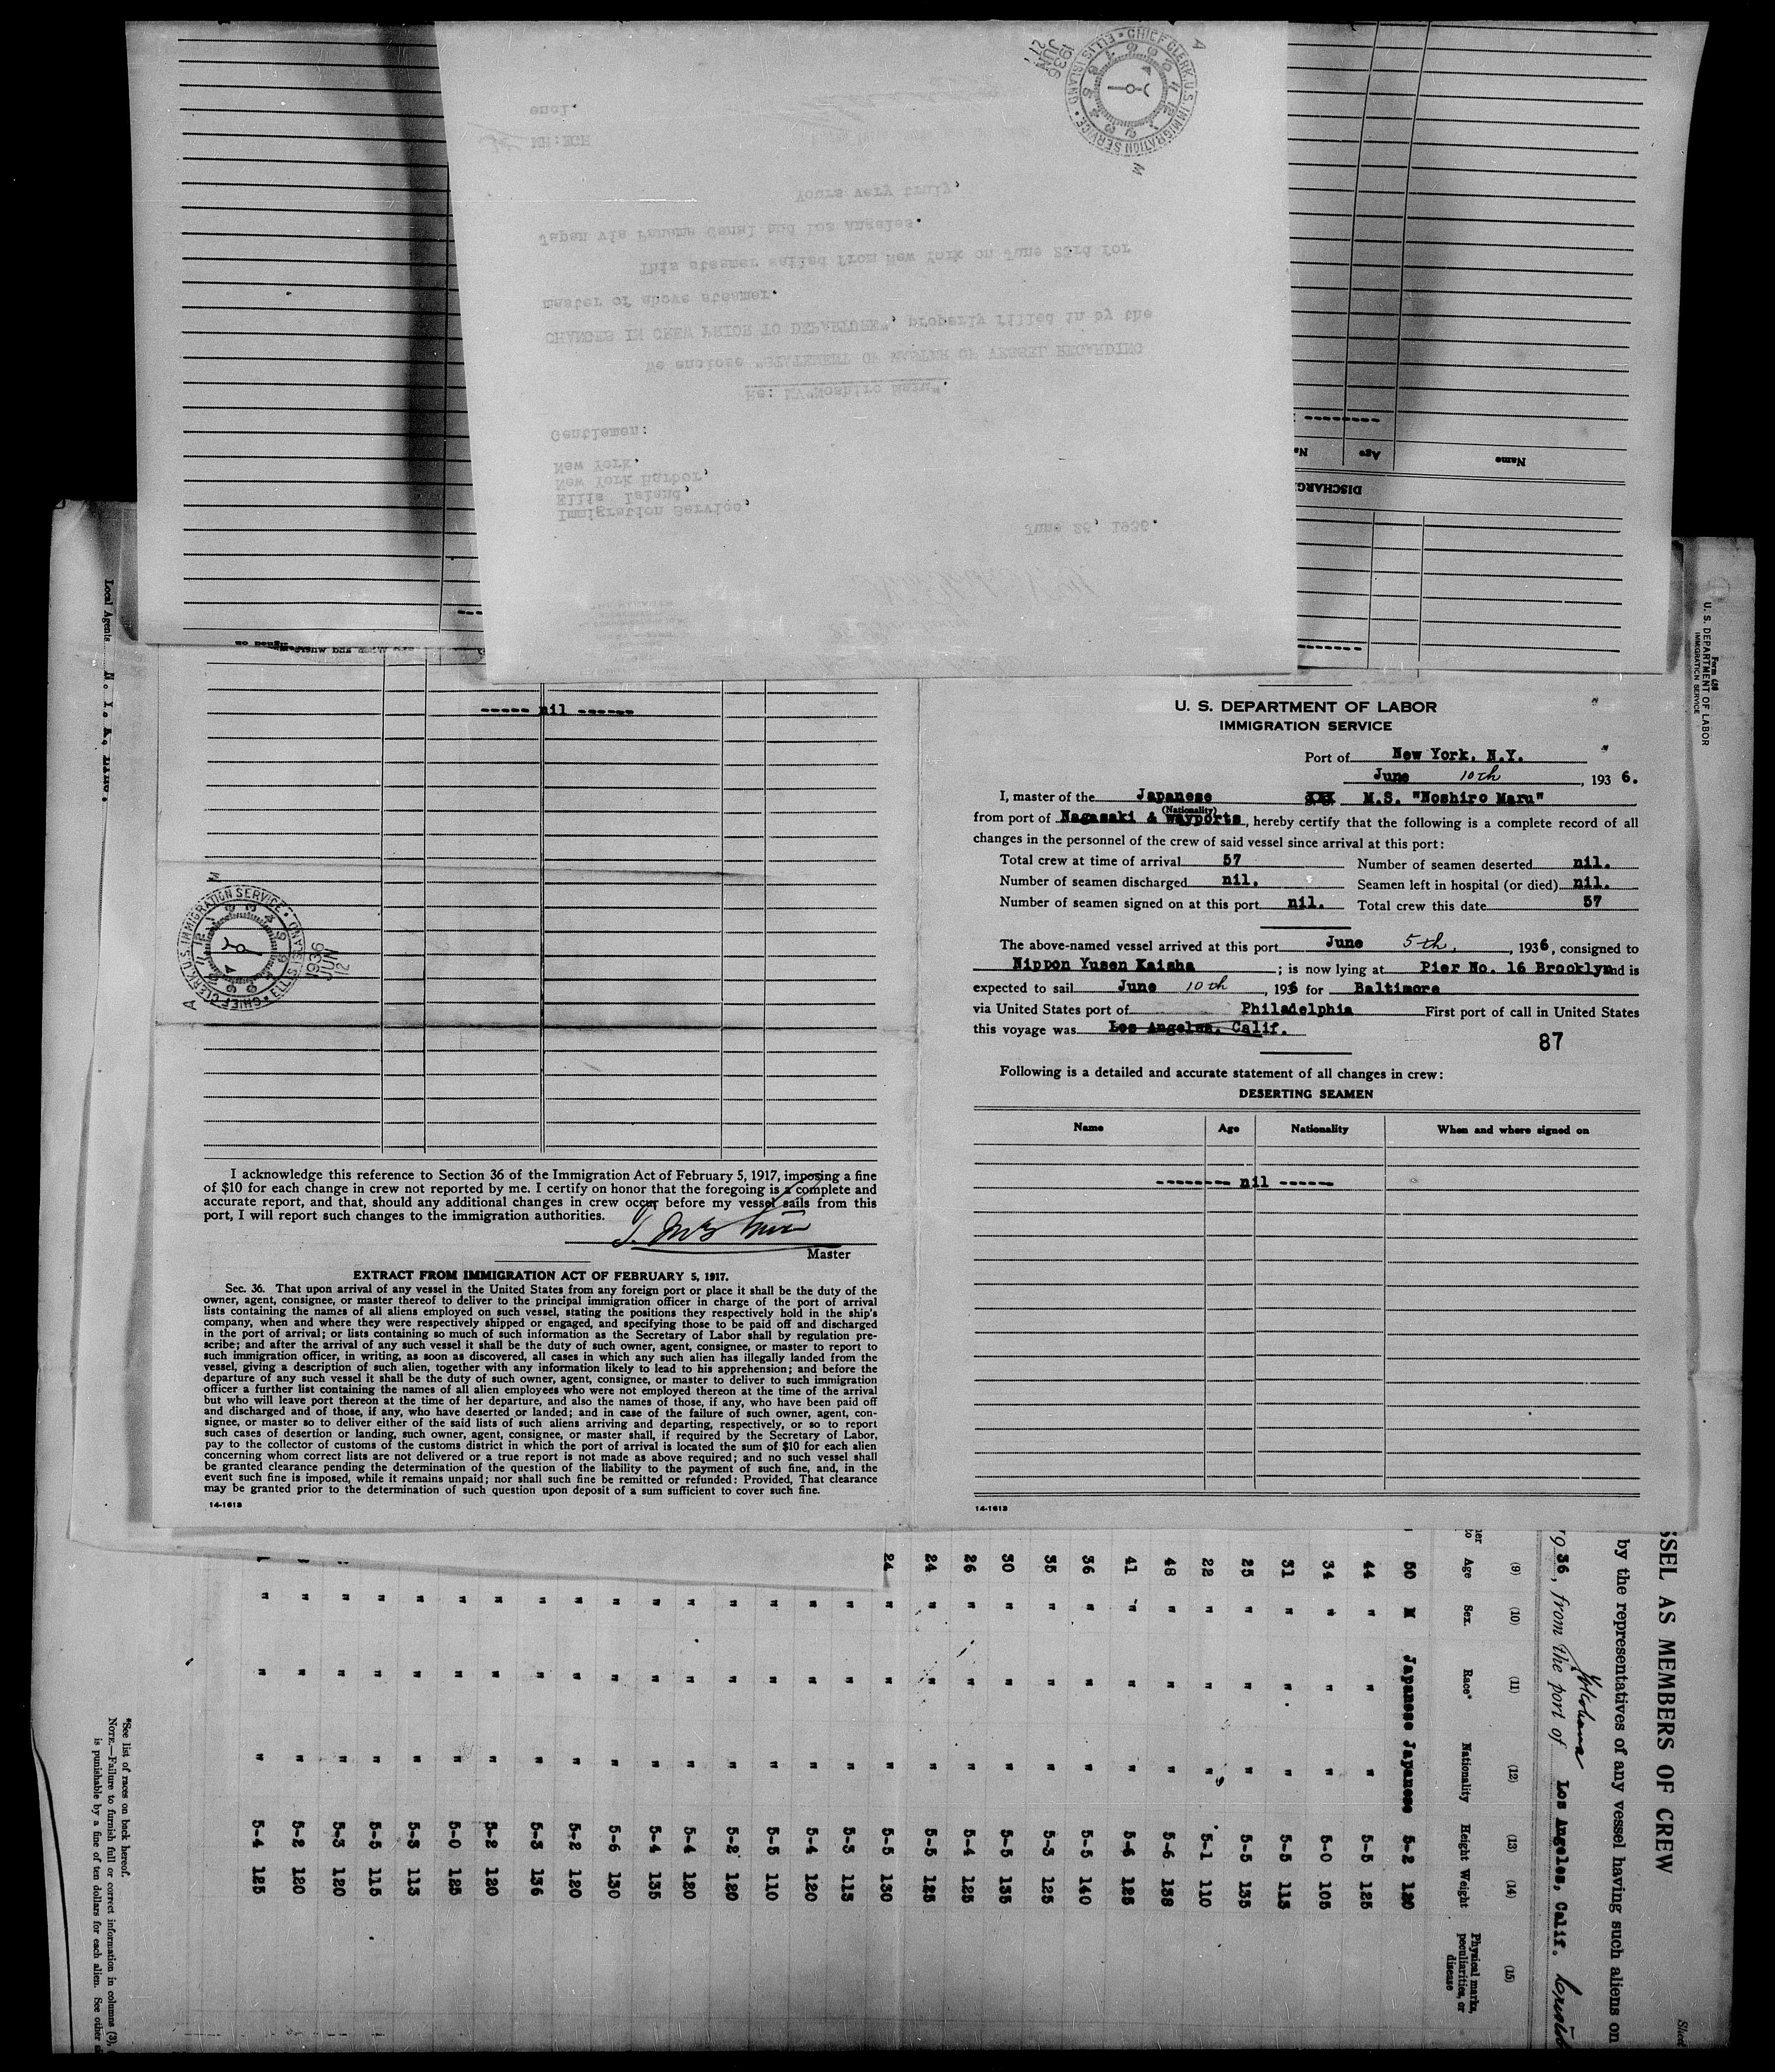 ELLIS ISLAND • CHIEF CLERK U.S. IMMIGRATION SERVICE •
1936
JUN
A
M
encl.
MH:EGH
Yours very truly,
Japan via Panama Canal and Los Angeles.
This steamer sailed from New York on June 23rd for
master of above steamer.
CHANGES IN CREW PRIOR TO DEPARTURE", properly filled in by the
We enclose "STATEMENT OF MASTER OF VESSEL REGARDING
Re: MV"Noshiro Maru".
Gentlemen:
New York.
New York Harbor,
Ellis Island,
Immigration Service,
June 26, 1936.
Name
Age
DISCHARG
Local Agents N. Y. K. LINE.
Form 680
U. S. DEPARTMENT OF LABOR
IMMIGRATION SERVICE
----- nil ------
M
CHIEF CLERK U.S. IMMIGRATION SERVICE • ELLIS ISLAND •
1936
JUN
12
A
I acknowledge this reference to Section 36 of the Immigration Act of February 5, 1917, imposing a fine
of $10 for each change in crew not reported by me. I certify on honor that the foregoing is a complete and
accurate report, and that, should any additional changes in crew occur before my vessel sails from this
port, I will report such changes to the immigration authorities.
Master
EXTRACT FROM IMMIGRATION ACT OF FEBRUARY 5, 1917.
Sec. 36. That upon arrival of any vessel in the United States from any foreign port or place it shall be the duty of the
owner, agent, consignee, or master thereof to deliver to the principal immigration officer in charge of the port of arrival
lists containing the names of all aliens employed on such vessel, stating the positions they respectively hold in the ship's
company, when and where they were respectively shipped or engaged, and specifying those to be paid off and discharged
in the port of arrival; or lists containing so much of such information as the Secretary of Labor shall by regulation pre-
scribe; and after the arrival of any such vessel it shall be the duty of such owner, agent, consignee, or master to report to
such immigration officer, in writing, as soon as discovered, all cases in which any such alien has illegally landed from the
vessel, giving a description of such alien, together with any information likely to lead to his apprehension; and before the
departure of any such vessel it shall be the duty of such owner, agent, consignee, or master to deliver to such immigration
officer a further list containing the names of all alien employees who were not employed thereon at the time of the arrival
but who will leave port thereon at the time of her departure, and also the names of those, if any, who have been paid off
and discharged and of those, if any, who have deserted or landed; and in case of the failure of such owner, agent, con-
signee, or master so to deliver either of the said lists of such aliens arriving and departing, respectively, or so to report
such cases of desertion or landing, such owner, agent, consignee, or master shall, if required by the Secretary of Labor,
pay to the collector of customs of the customs district in which the port of arrival is located the sum of $10 for each alien
concerning whom correct lists are not delivered or a true report is not made as above required; and no such vessel shall
be granted clearance pending the determination of the question of the liability to the payment of such fine, and, in the
event such fine is imposed, while it remains unpaid; nor shall such fine be remitted or refunded: Provided, That clearance
may be granted prior to the determination of such question upon deposit of a sum sufficient to cover such fine.
14-1613
U. S. DEPARTMENT OF LABOR
IMMIGRATION SERVICE
Port of New York, N.Y.
June 10th, 1936.
I, master of the Japanese M.S. "Noshiro Maru"
(Nationality)
from port of Nagasaki & Wayports, hereby certify that the following is a complete record of all
changes in the personnel of the crew of said vessel since arrival at this port:
Total crew at time of arrival 57 Number of seamen deserted nil.
Number of seamen discharged nil. Seamen left in hospital (or died) nil.
Number of seamen signed on at this port nil. Total crew this date 57
The above-named vessel arrived at this port June 5th, 1936, consigned to
Nippon Yusen Kaisha; is now lying at Pier No. 16 Brooklyn and is
expected to sail June 10th, 1936 for Baltimore
via United States port of Philadelphia First port of call in United States
this voyage was Los Angeles, Calif.
87
Following is a detailed and accurate statement of all changes in crew:
DESERTING SEAMEN
Name Age Nationality When and where signed on
-------- nil ------
14-1613
SSEL AS MEMBERS OF CREW
by the representatives of any vessel having such aliens on
1936, from the port of Yokohama Los Angeles, Calif.
(9) (10) (11) (12) (13) (14) (15)
Age Sex Race* Nationality Height Weight Physical marks, peculiarities, or disease
50 M Japanese Japanese 5-2 120
44 " " " 5-5 125
34 " " " 5-0 105
31 " " " 5-5 113
25 " " " 5-5 135
22 " " " 5-1 110
48 " " " 5-6 138
41 " " " 5-6 125
36 " " " 5-5 140
35 " " " 5-3 125
30 " " " 5-5 135
26 " " " 5-4 125
24 " " " 5-5 125
24 " " " 5-5 130
" " " 5-3 113
" " " 5-4 120
" " " 5-5 110
" " " 5-2 120
" " " 5-4 120
" " " 5-4 135
" " " 5-6 130
" " " 5-2 120
" " " 5-3 136
" " " 5-2 120
" " " 5-0 125
" " " 5-3 113
" " " 5-5 115
" " " 5-3 120
" " " 5-2 120
" " " 5-4 125
*See list of races on back hereof.
NOTE.—Failure to furnish full or correct information in columns (3),
is punishable by a fine of ten dollars for each alien. See other